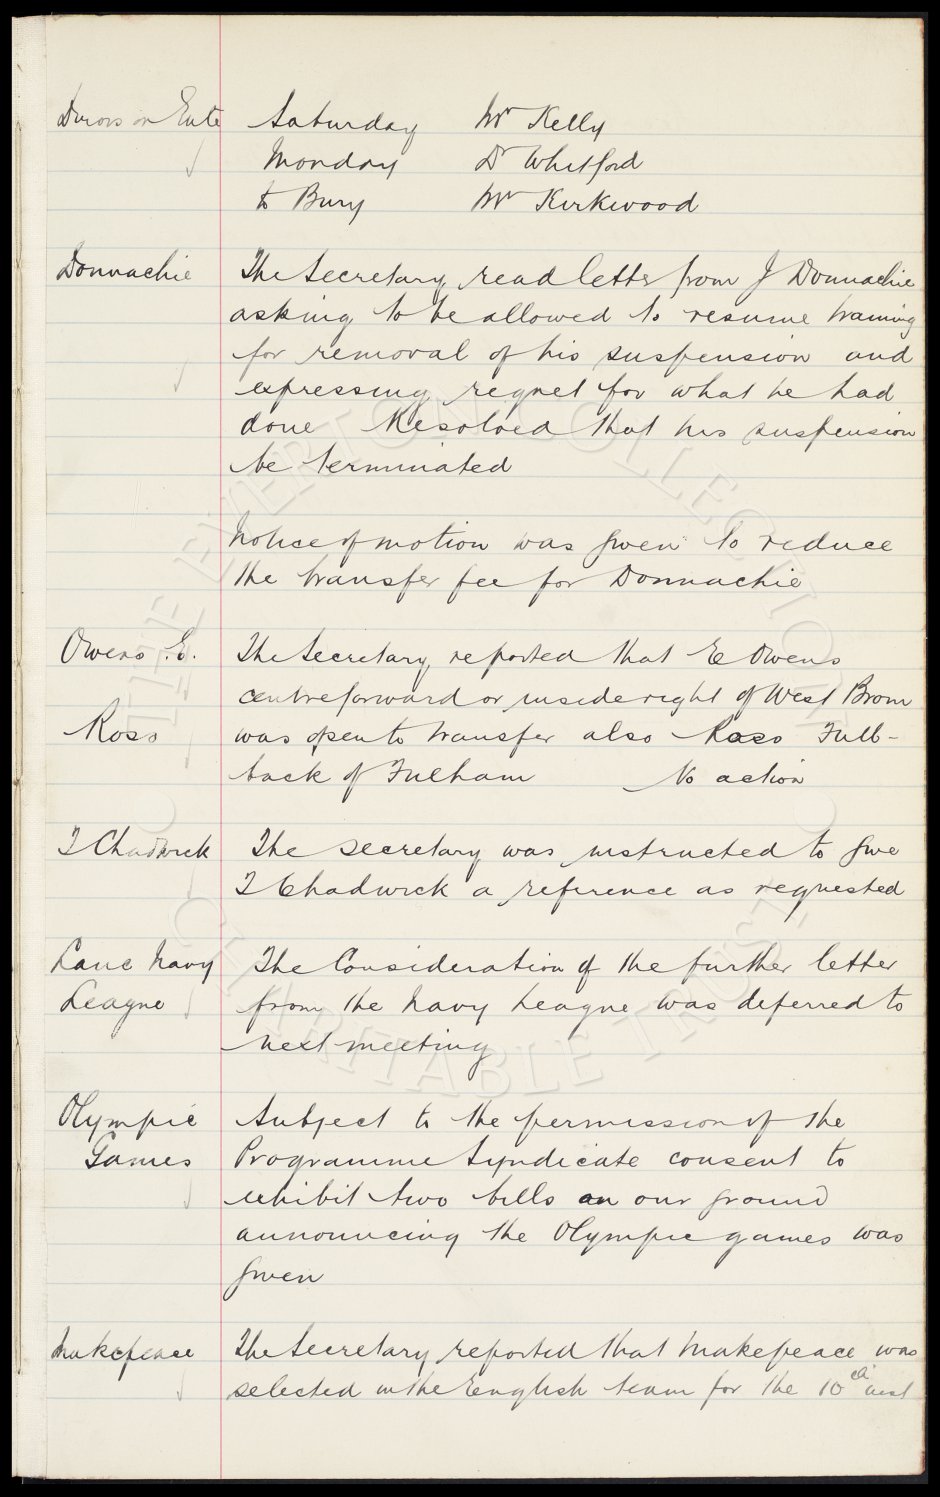 Dirors on Gate Saturday Mr Kelly
Monday Dr Whitford
to Bury Mr Kirkwood
Donnachie The Secretary read letter from J Donnachie
asking to be allowed to resume training
for removal of his suspension and
expressing regret for what he had
done Resolved that his suspension
be terminated
Notice of motion was given to reduce
the transfer fee for Donnachie
Owens E. The Secretary reported that E Owens
centreforward or insideright of West Brom
Ross was open to transfer also Ross Full-
back of Fulham No action
T Chadwick The secretary was instructed to give
T Chadwick a reference as requested
Lanc Navy The Consideration of the further letter
League from the Navy League was deferred to
next meeting
Olympic Subject to the permission of the
Games Programme Syndicate consent to
exhibit two bills on our ground
announcing the Olympic games was
given
Makepeace The Secretary reported that Makepeace was
selected in the English team for the 10th inst
THE EVERTON COLLECTION
CHARITABLE TRUST